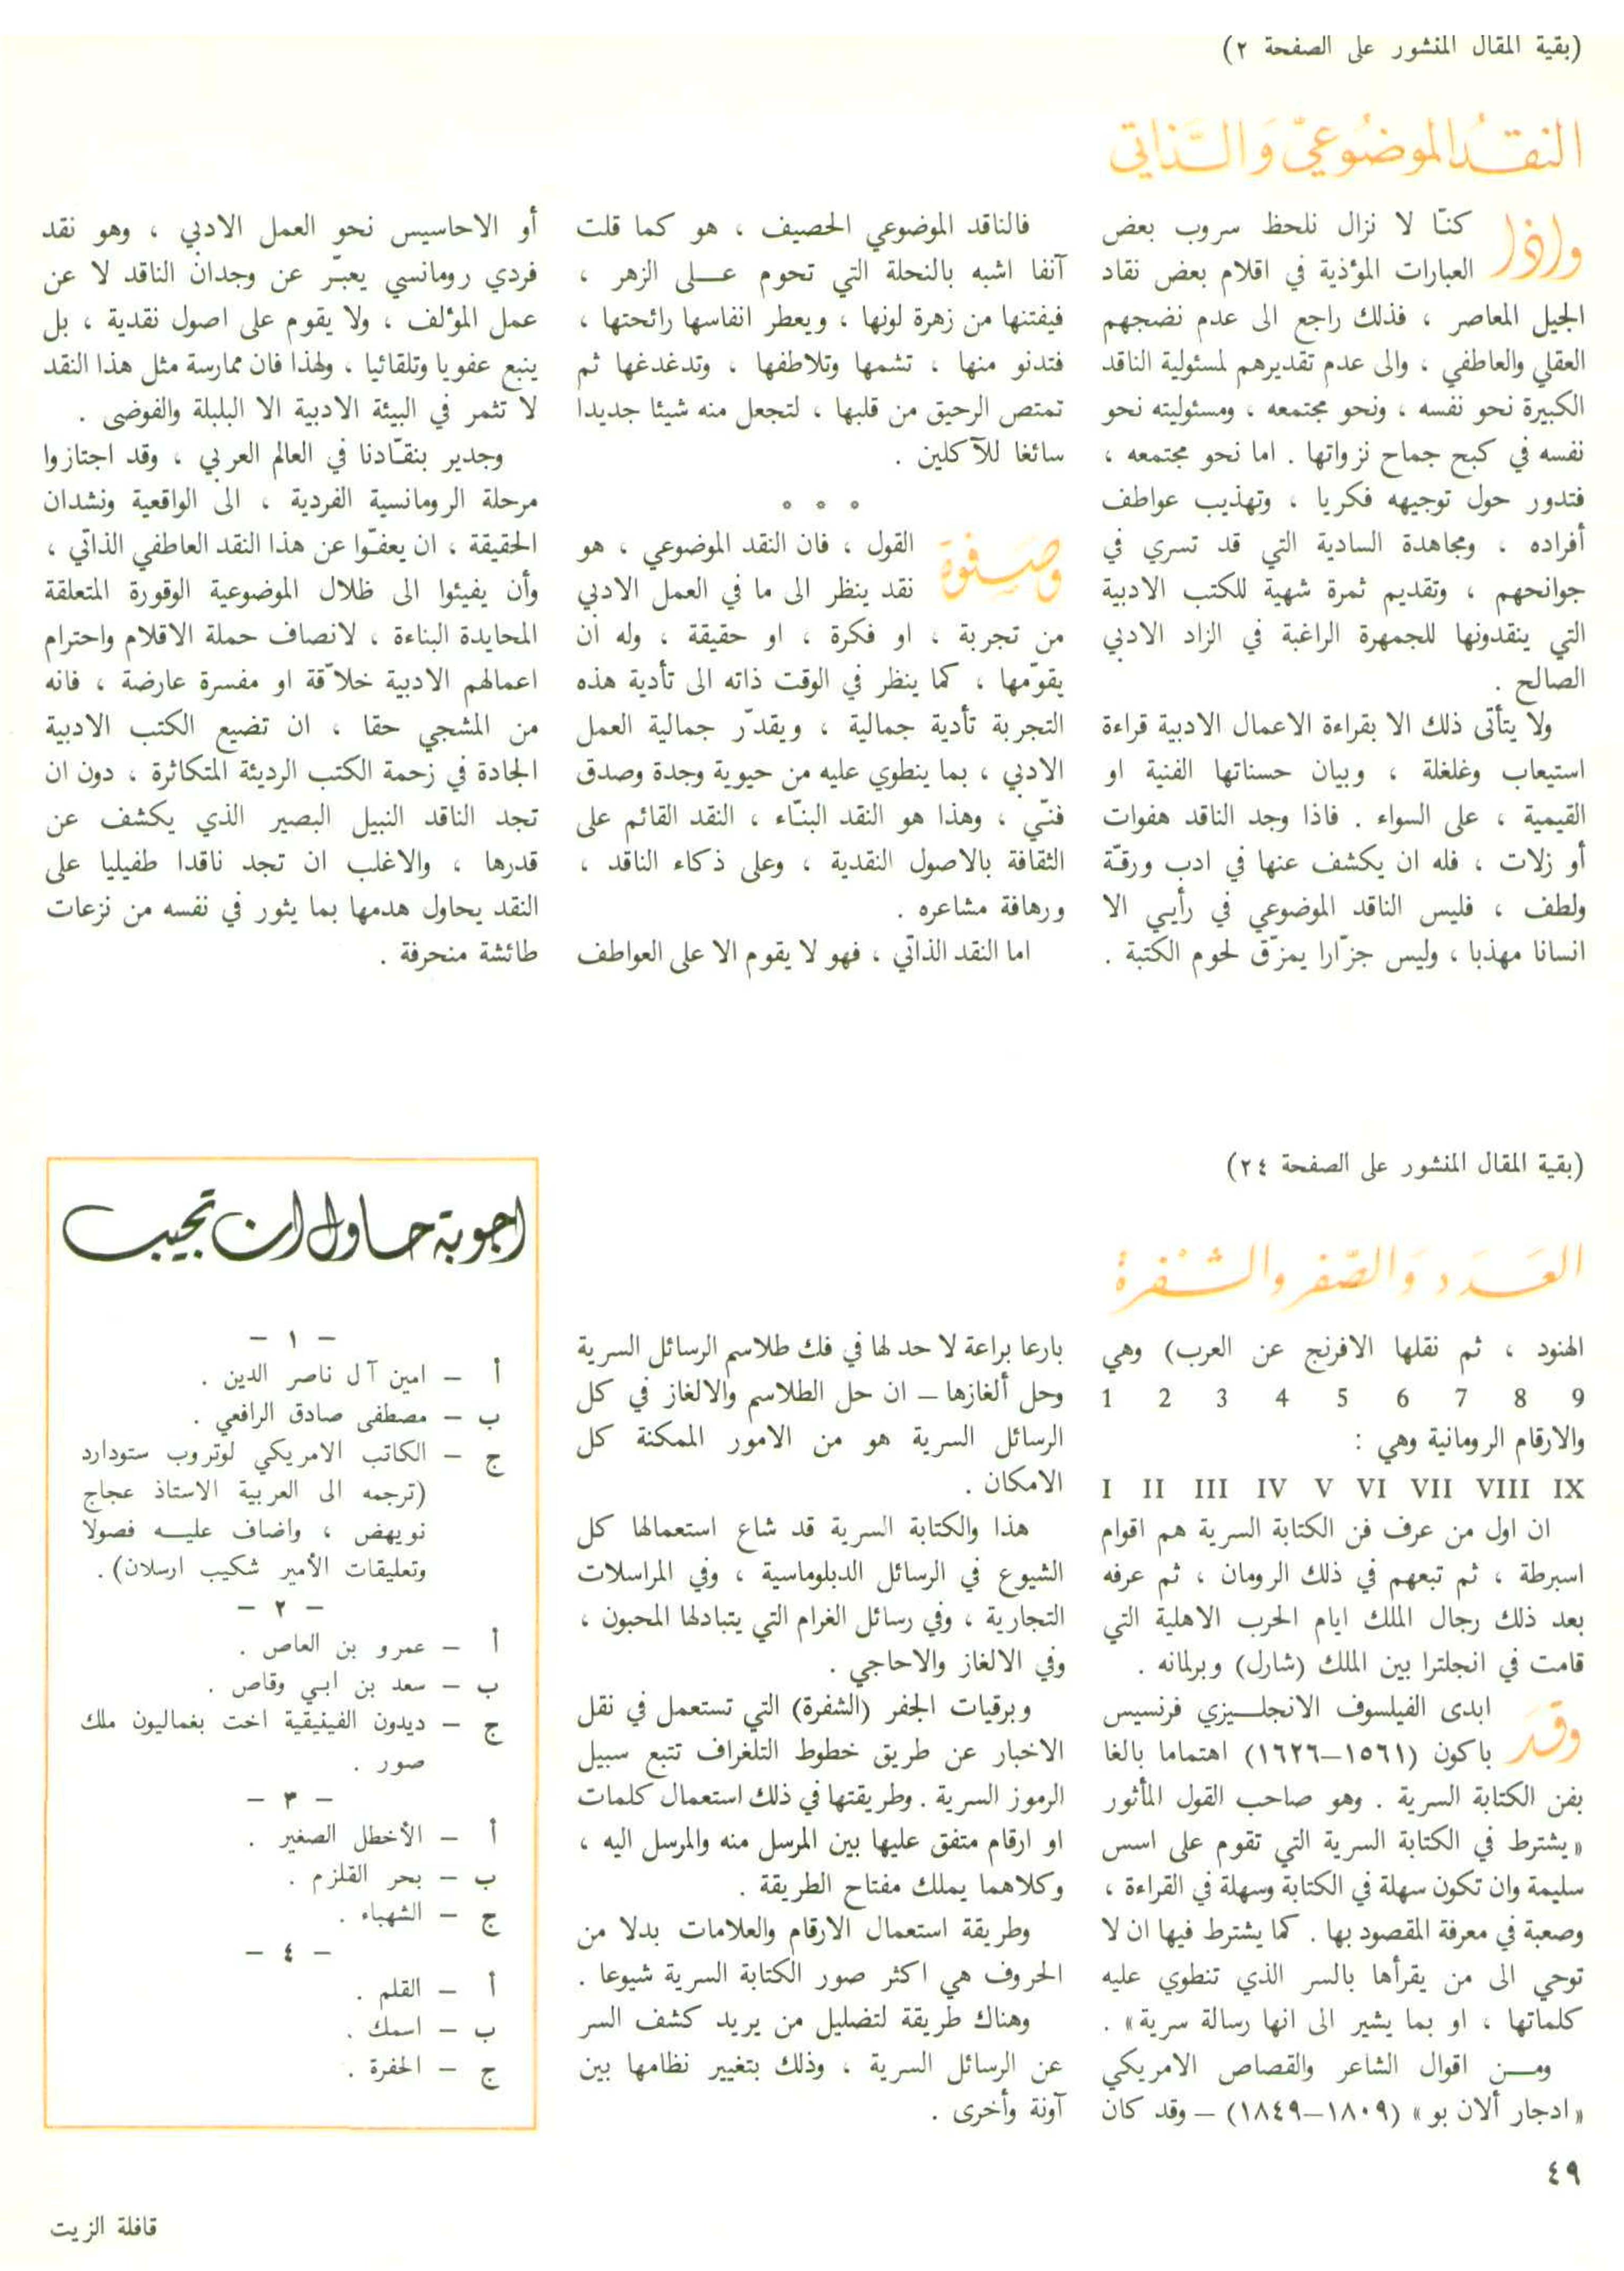 (بقية المقال المنشور على الصفحة ٢)
النقد الموضوعيّ والذاتي
واذا كنّا لا نزال نلحظ سروب بعض
العبارات المؤذية في اقلام بعض نقاد
الجيل المعاصر ، فذلك راجع الى عدم نضجهم
العقلي والعاطفي ، والى عدم تقديرهم لمسئولية الناقد
الكبيرة نحو نفسه ، ونحو مجتمعه ، ومسئوليته نحو
نفسه في كبح جماح نزواتها . اما نحو مجتمعه ،
فتدور حول توجيهه فكريا ، وتهذيب عواطف
أفراده ، ومجاهدة السادية التي قد تسري في
جوانحهم ، وتقديم ثمرة شهية للكتب الادبية
التي ينقدونها للجمهرة الراغبة في الزاد الادبي
الصالح .
ولا يتأتى ذلك الا بقراءة الاعمال الادبية قراءة
استيعاب وغلغلة ، وبيان حسناتها الفنية او
القيمية ، على السواء . فاذا وجد الناقد هفوات
أو زلات ، فله ان يكشف عنها في ادب ورقّة
ولطف ، فليس الناقد الموضوعي في رأيي الا
انسانا مهذبا ، وليس جزّارا يمزّق لحوم الكتبة .
فالناقد الموضوعي الحصيف ، هو كما قلت
آنفا اشبه بالنحلة التي تحوم عـلى الزهر ،
فيفتنها من زهرة لونها ، ويعطر انفاسها رائحتها ،
فتدنو منها ، تشمها وتلاطفها ، وتدغدغها ثم
تمتص الرحيق من قلبها ، لتجعل منه شيئا جديدا
سائغا للآكلين .
° ° °
وصفوة القول ، فان النقد الموضوعي ، هو
نقد ينظر الى ما في العمل الادبي
من تجربة ، او فكرة ، او حقيقة ، وله ان
يقوّمها ، كما ينظر في الوقت ذاته الى تأدية هذه
التجربة تأدية جمالية ، ويقدّر جمالية العمل
الادبي ، بما ينطوي عليه من حيوية وجدة وصدق
فنّي ، وهذا هو النقد البنّاء ، النقد القائم على
الثقافة بالاصول النقدية ، وعلى ذكاء الناقد ،
ورهافة مشاعره .
اما النقد الذاتي ، فهو لا يقوم الا على العواطف
أو الاحاسيس نحو العمل الادبي ، وهو نقد
فردي رومانسي يعبّر عن وجدان الناقد لا عن
عمل المؤلف ، ولا يقوم على اصول نقدية ، بل
ينبع عفويا وتلقائيا ، ولهذا فان ممارسة مثل هذا النقد
لا تثمر في البيئة الادبية الا البلبلة والفوضى .
وجدير بنقّادنا في العالم العربي ، وقد اجتازوا
مرحلة الرومانسية الفردية ، الى الواقعية ونشدان
الحقيقة ، ان يعفّوا عن هذا النقد العاطفي الذاتي ،
وأن يفيئوا الى ظلال الموضوعية الوقورة المتعلقة
المحايدة البناءة ، لانصاف حملة الاقلام واحترام
اعمالهم الادبية خلاّقة او مفسرة عارضة ، فانه
من المشجي حقا ، ان تضيع الكتب الادبية
الجادة في زحمة الكتب الرديئة المتكاثرة ، دون ان
تجد الناقد النبيل البصير الذي يكشف عن
قدرها ، والاغلب ان تجد ناقدا طفيليا على
النقد يحاول هدمها بما يثور في نفسه من نزعات
طائشة منحرفة .
(بقية المقال المنشور على الصفحة ٢٤)
العَدَد وَالصّفر والشفرة
الهنود ، ثم نقلها الافرنج عن العرب) وهي
1 2 3 4 5 6 7 8 9
والارقام الرومانية وهي :
I II III IV V VI VII VIII IX
ان اول من عرف فن الكتابة السرية هم اقوام
اسبرطة ، ثم تبعهم في ذلك الرومان ، ثم عرفه
بعد ذلك رجال الملك ايام الحرب الاهلية التي
قامت في انجلترا بين الملك (شارل) وبرلمانه .
وقد ابدى الفيلسوف الانجلـيزي فرنسيس
باكون (١٥٦١–١٦٢٦) اهتماما بالغا
بفن الكتابة السرية . وهو صاحب القول المأثور
«يشترط في الكتابة السرية التي تقوم على اسس
سليمة وان تكون سهلة في الكتابة وسهلة في القراءة ،
وصعبة في معرفة المقصود بها . كما يشترط فيها ان لا
توحي الى من يقرأها بالسر الذي تنطوي عليه
كلماتها ، او بما يشير الى انها رسالة سرية» .
ومـن اقوال الشاعر والقصاص الامريكي
«ادجار ألان بو» (١٨٠٩–١٨٤٩) – وقد كان
بارعا براعة لا حد لها في فك طلاسم الرسائل السرية
وحل ألغازها – ان حل الطلاسم والالغاز في كل
الرسائل السرية هو من الامور الممكنة كل
الامكان .
هذا والكتابة السرية قد شاع استعمالها كل
الشيوع في الرسائل الدبلوماسية ، وفي المراسلات
التجارية ، وفي رسائل الغرام التي يتبادلها المحبون ،
وفي الالغاز والاحاجي .
وبرقيات الجفر (الشفرة) التي تستعمل في نقل
الاخبار عن طريق خطوط التلغراف تتبع سبيل
الرموز السرية . وطريقتها في ذلك استعمال كلمات
او ارقام متفق عليها بين المرسل منه والمرسل اليه ،
وكلاهما يملك مفتاح الطريقة .
وطريقة استعمال الارقام والعلامات بدلا من
الحروف هي اكثر صور الكتابة السرية شيوعا .
وهناك طريقة لتضليل من يريد كشف السر
عن الرسائل السرية ، وذلك بتغيير نظامها بين
آونة وأخرى .
اجوبة حاول ان تجيب
– ١ –
أ – امين آل ناصر الدين .
ب – مصطفى صادق الرافعي .
ج – الكاتب الامريكي لوتروب ستودارد
(ترجمه الى العربية الاستاذ عجاج
نويهض ، واضاف عليـه فصولا
وتعليقات الأمير شكيب ارسلان) .
– ٢ –
أ – عمرو بن العاص .
ب – سعد بن ابي وقاص .
ج – ديدون الفينيقية اخت بغماليون ملك
صور .
– ٣ –
أ – الأخطل الصغير .
ب – بحر القلزم .
ج – الشهباء .
– ٤ –
أ – القلم .
ب – اسمك .
ج – الحفرة .
٤٩
قافلة الزيت